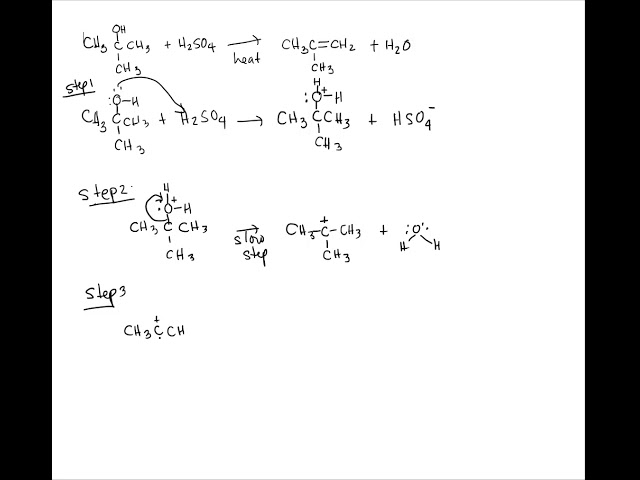 OH
CH3 C CH3 + H2SO4 → heat CH3C=CH2 + H2O
CH3 CH3
Step1
:O-H H
CH3 C CH3 + H2SO4 → :O+-H
CH3 CH3 C CH3 + HSO4-
CH3
Step2.
H
:O+-H
CH3 C CH3 → slow step CH3-C+-CH3 + :O:
CH3 CH3 H H
Step3
+
CH3 C CH